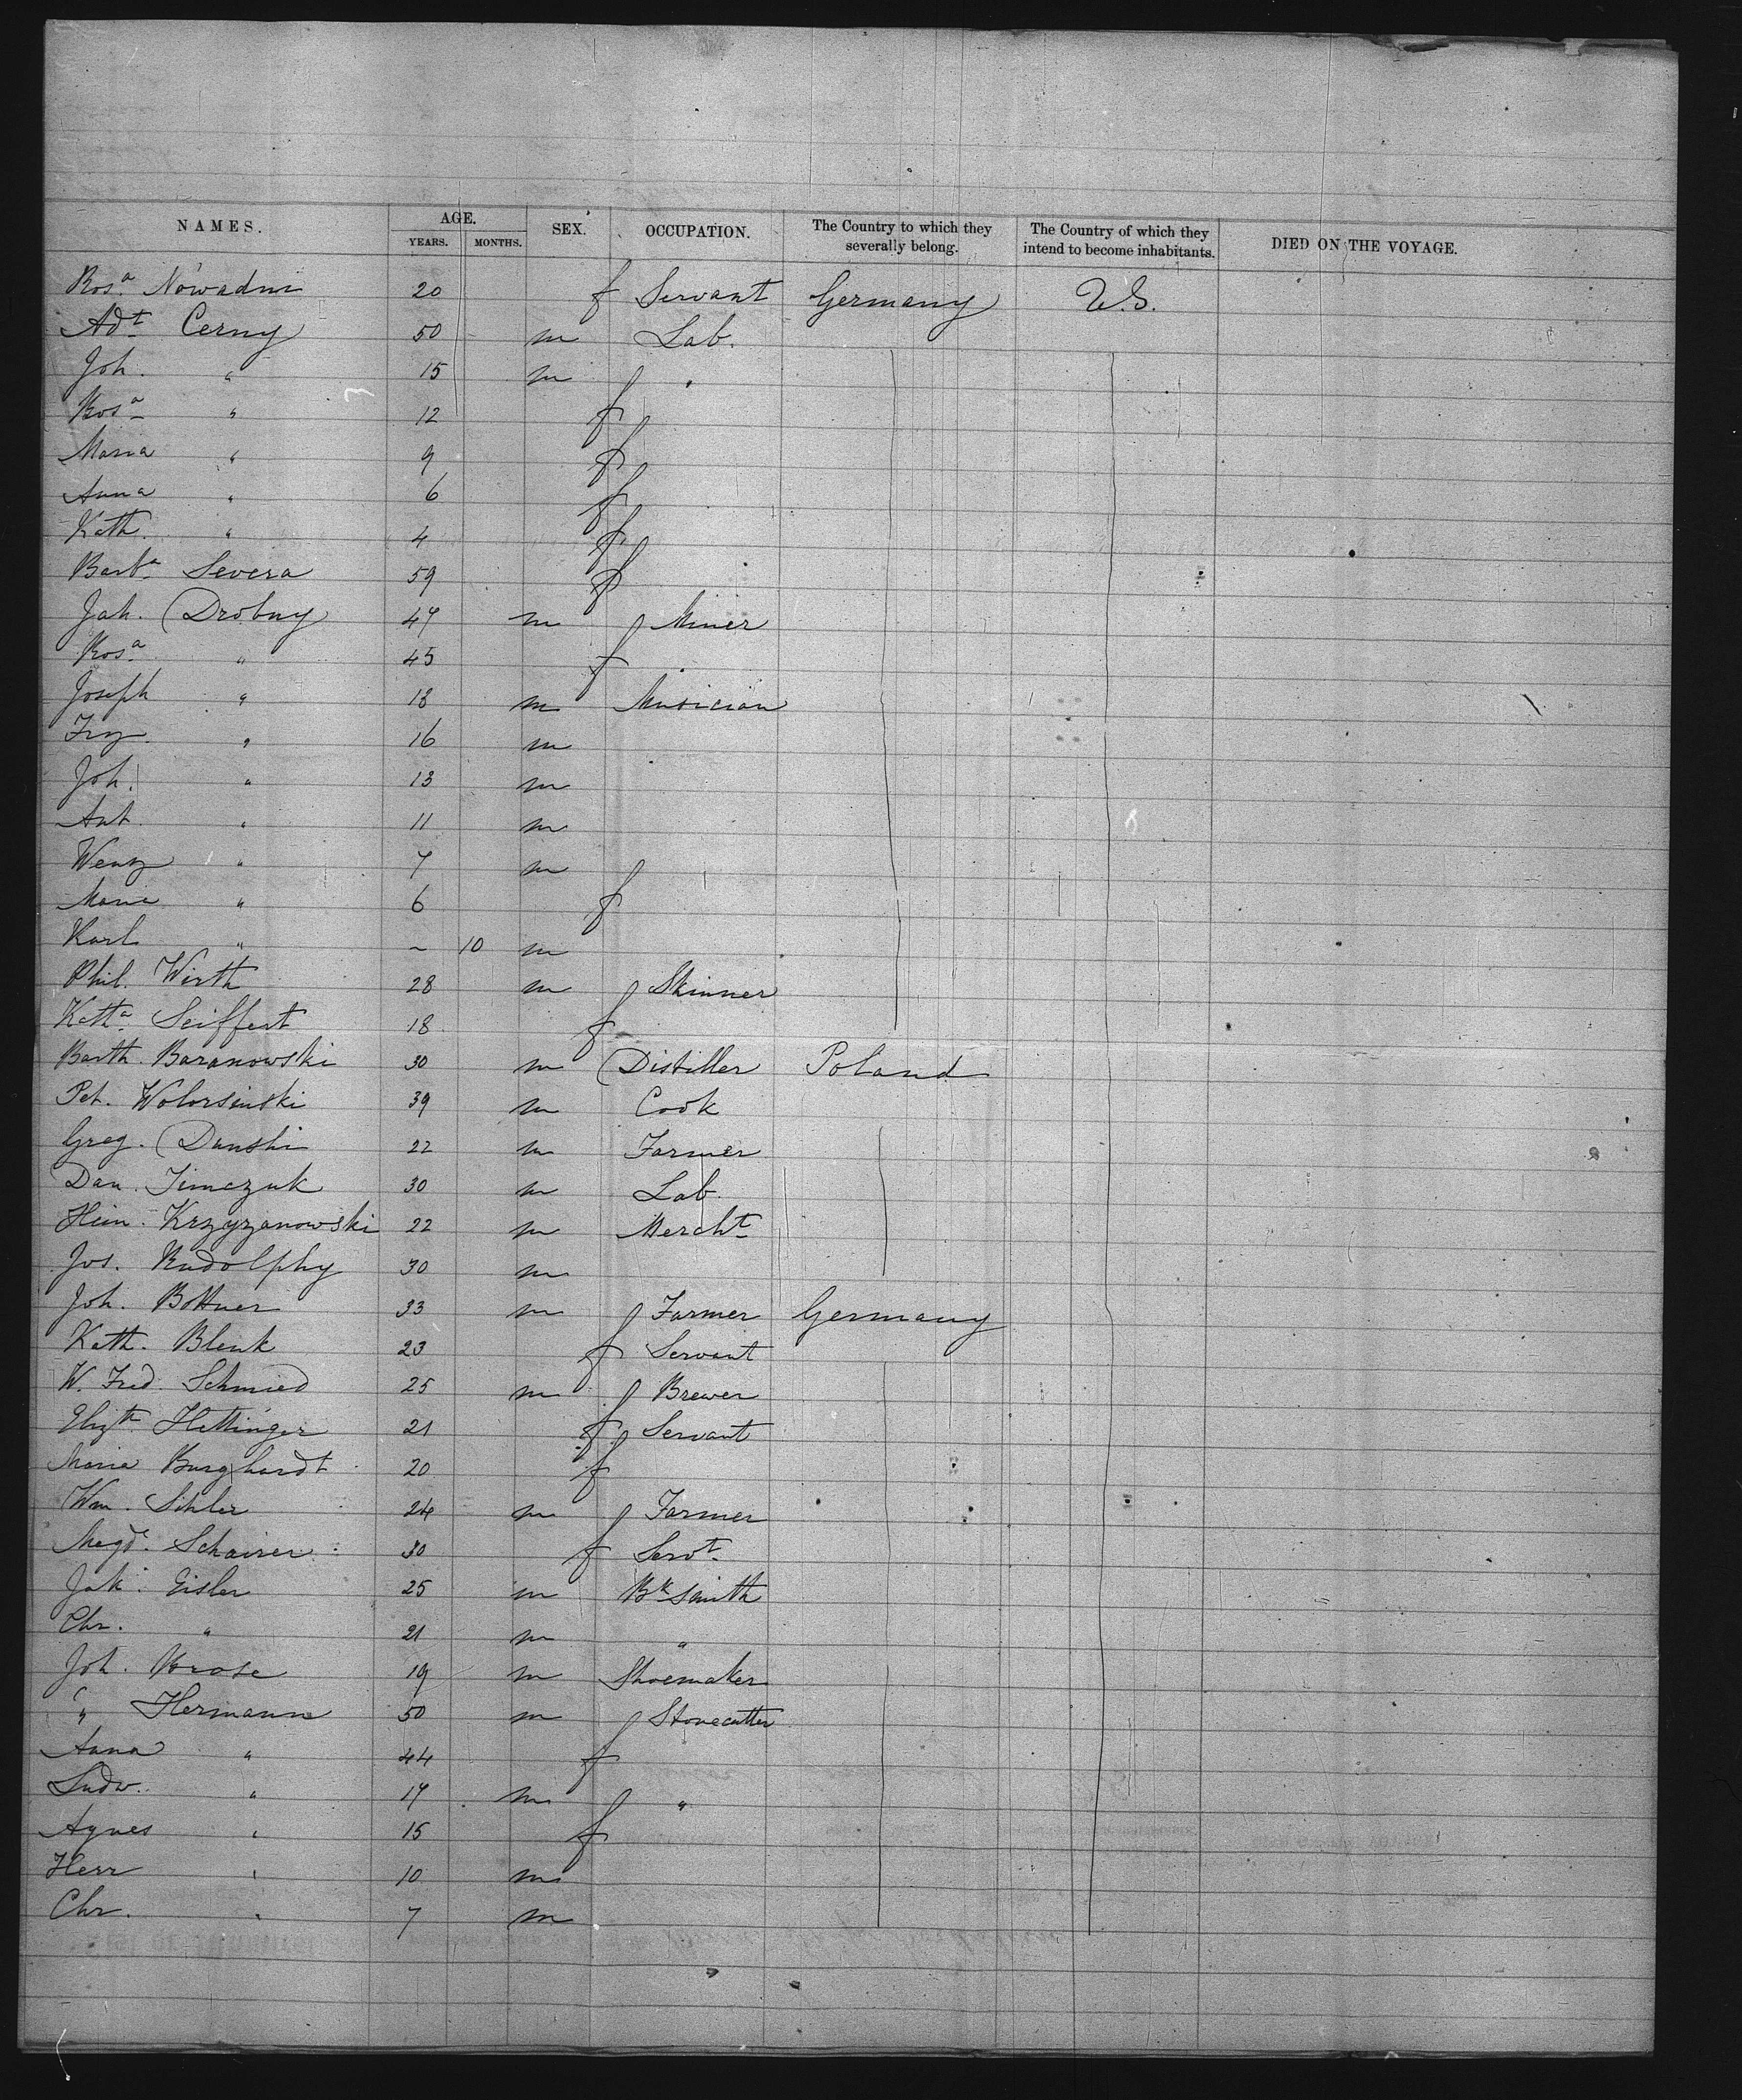 NAMES. AGE. YEARS. MONTHS. SEX. OCCUPATION. The Country to which they severally belong. The Country of which they intend to become inhabitants. DIED ON THE VOYAGE.
Rosa Nowadni 20 f Servant Germany U.S.
Adt Cerny 50 m Lab.
Joh. " 15 m
Rosa " 12 f
Maria " 9 f
Anna " 6 f
Kath. " 4 f
Barba Severa 59 f
Joh. Drobny 47 m Miner
Rosa " 45 f
Joseph " 18 m Musician
Frz. " 16 m
Joh. " 13 m
Ant. " 11 m
Wenz " 7 m
Maria " 6 f
Karl " ~ 10 m
Phil. Wirth 28 m Skinner
Katha Seiffert 18 f
Barth. Baranowski 30 m Distiller Poland
Pet. Wolorsinski 39 m Cook
Greg. Danski 22 m Farmer
Dan. Timczuk 30 m Lab.
Hein. Krzyzanowski 22 m Mercht
Jos. Rudolphy 30 m
Joh. Bottner 33 m Farmer Germany
Kath. Blenk 23 f Servant
W. Fred. Schmied 25 m Brewer
Elizth Hettinger 21 f Servant
Maria Burghardt 20 f
Wm. Sihler 24 m Farmer
Magd. Schairer 30 f Servt
Jak. Eisler 25 m Bksmith
Chr. " 21 m "
Joh. Krose 19 m Shoemaker
" Hermann 50 m Stonecutter
Anna " 44 f
Ludw. " 17 m "
Agnes " 15 f
Herr " 10 m
Chr. " 7 m